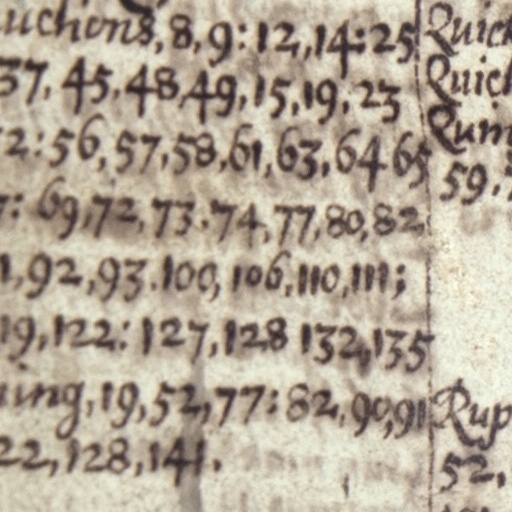 uctions, 8, 9: 12, 14: 25
37, 45, 48, 49, 15, 19, 23
2: 56, 57, 58, 61, 63, 64 65
7: 69, 72, 73. 74, 77, 80, 82
1, 92, 93. 100, 106, 110, 111;
19, 122: 127, 128 132, 135
ing, 19, 52, 77: 82, 90, 91
22, 128, 141.
Quick
Quick
59.
Rup
52,